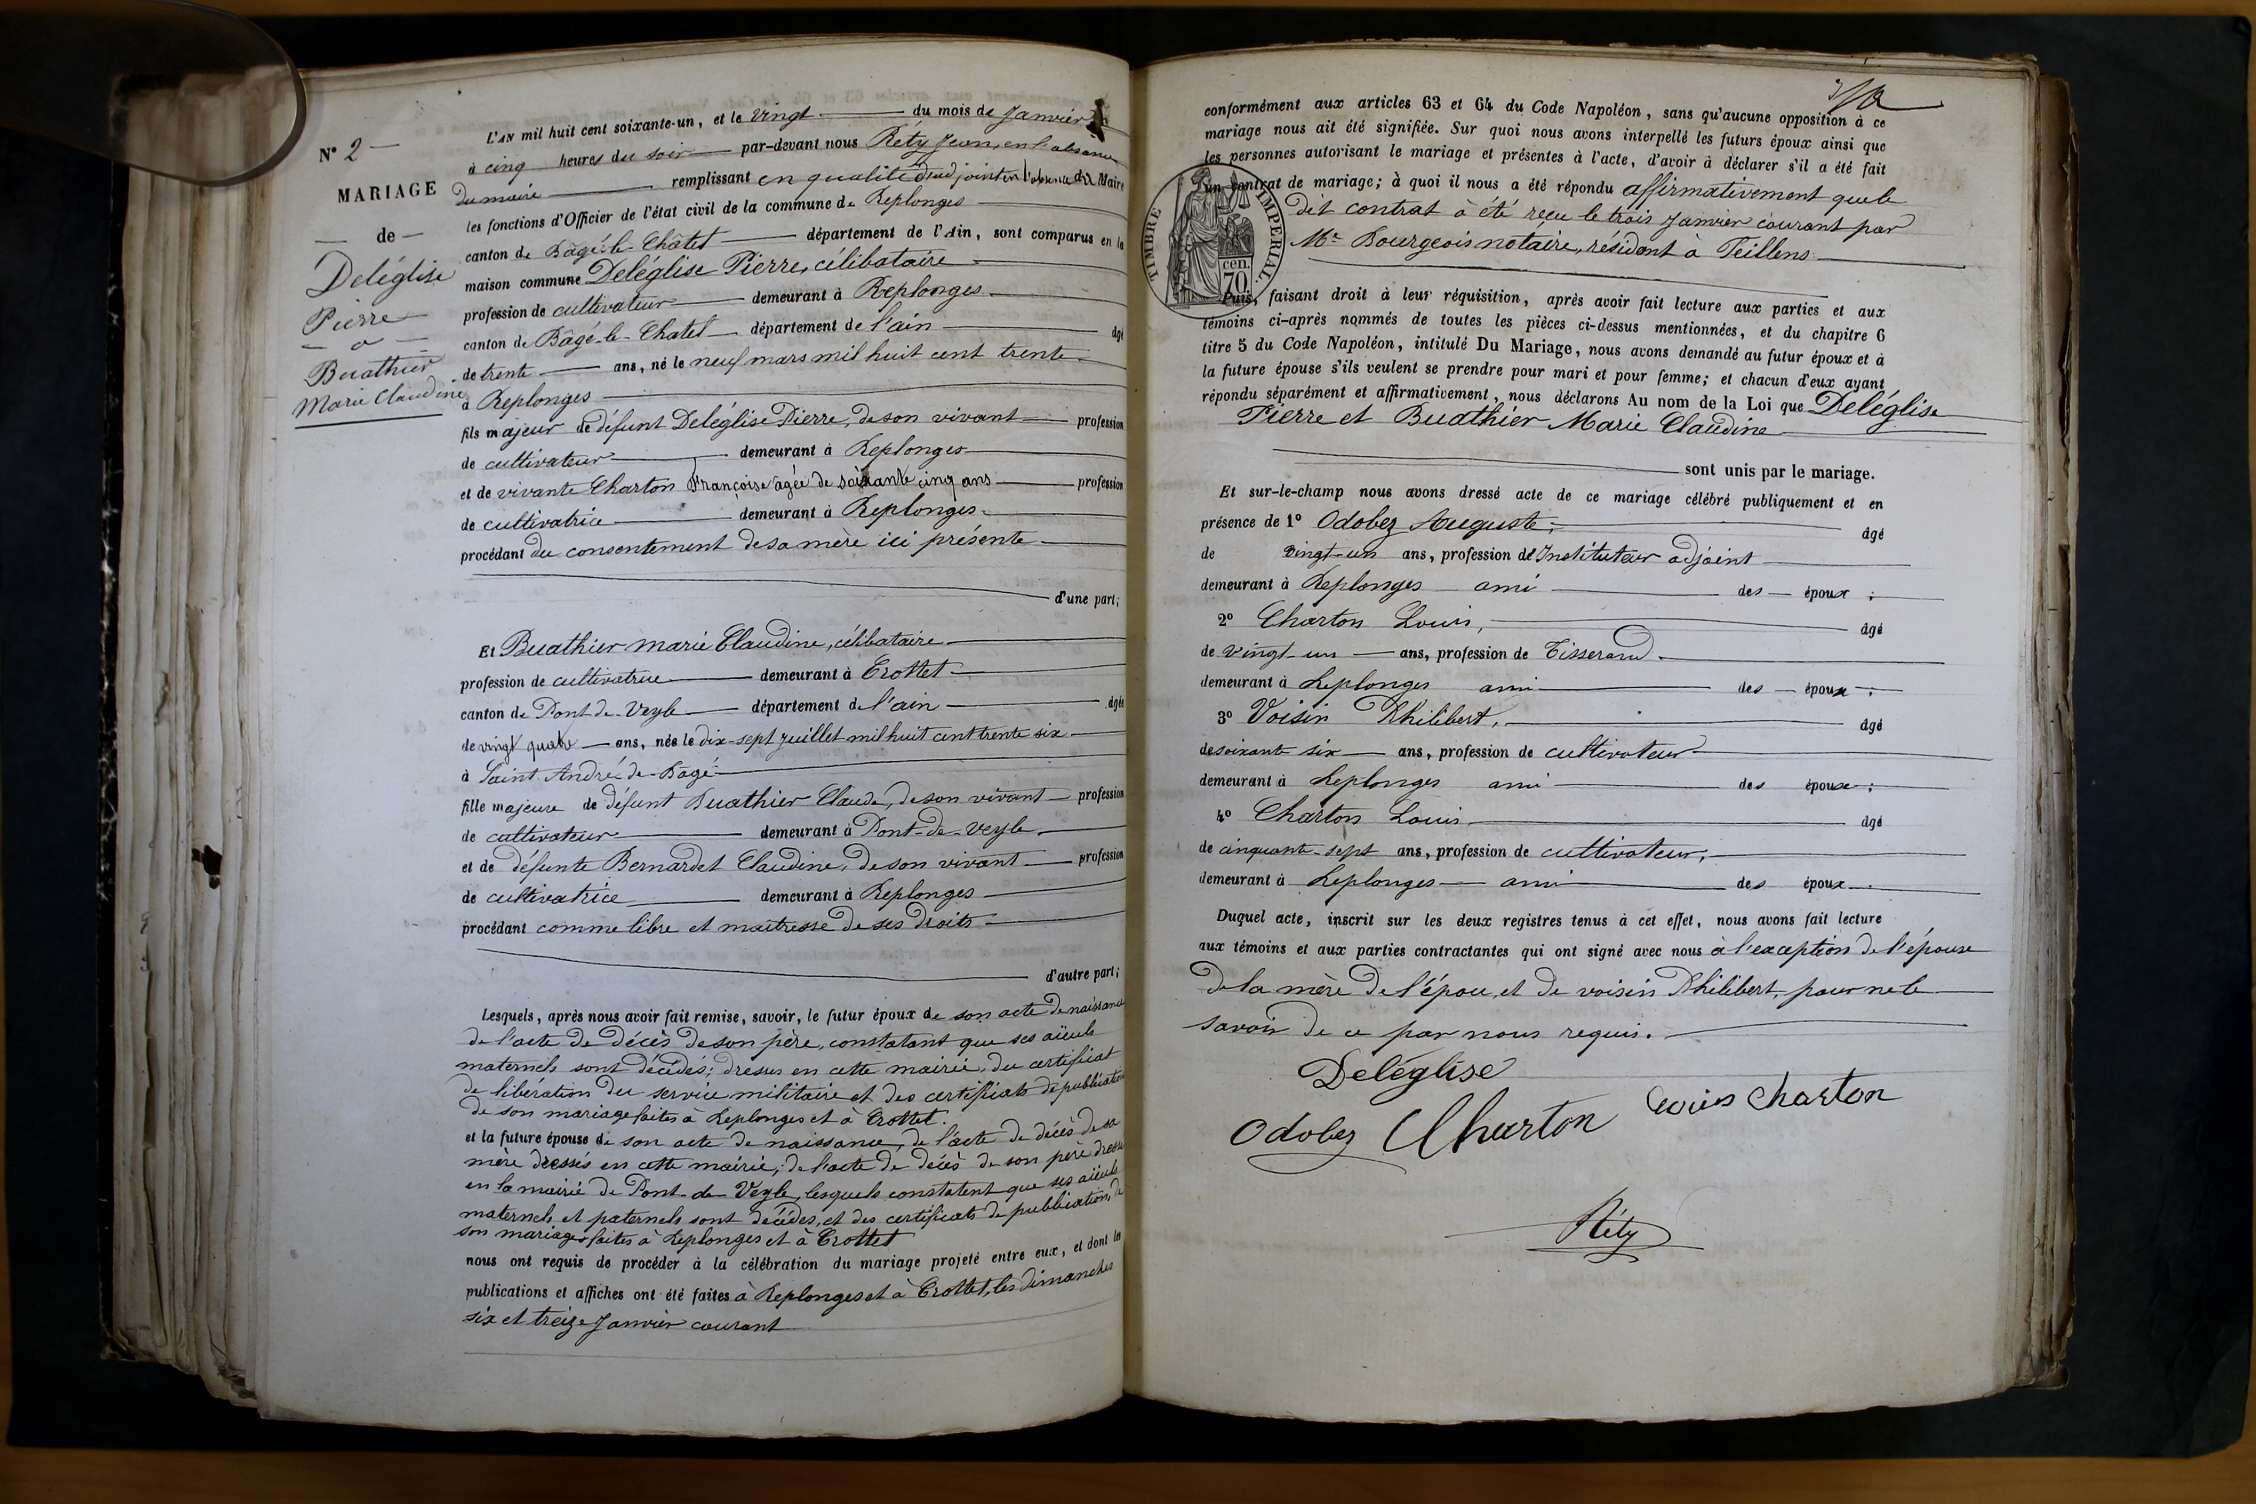 N° 2
MARIAGE
de
Deléglise
Pierre
&
Buathier
Marie Claudine
L'AN mil huit cent soixante-un, et le vingt du mois de Janvier
à cinq heures du soir par-devant nous Réty Jean, en l'absence
du maire remplissant en qualité d'adjoint en l'absence du Maire
les fonctions d'Officier de l'état civil de la commune de Replonges
canton de Bâgé-le-Châtel département de l'Ain, sont comparus en la
maison commune Deléglise Pierre, célibataire
profession de cultivateur demeurant à Replonges
canton de Bâgé-le-Chatel département de l'ain âgé
de trente ans, né le neuf mars mil huit cent trente
à Replonges
fils majeur de défunt Deléglise Pierre, de son vivant profession
de cultivateur demeurant à Replonges
et de vivante Charton Françoise agée de soixante cinq ans profession
de cultivatrice demeurant à Replonges
procédant du consentement de sa mère ici présente
d'une part;
Et Buathier Marie Claudine, célibataire
profession de cultivatrice demeurant à Crottet
canton de Pont-de-Veyle département de l'ain âgée
de vingt quatre ans, née le dix-sept Juillet mil huit cent trente six
à Saint-André-de-Bagé
fille majeure de défunt Buathier Claude, de son vivant profession
de cultivateur demeurant à Pont-de-Veyle
et de défunte Bernardet Claudine, de son vivant profession
de cultivatrice demeurant à Replonges
procédant comme libre et maitresse de ses droits
d'autre part;
Lesquels, après nous avoir fait remise, savoir, le futur époux de son acte de naissance
de l'acte de décès de son père, constatant que ses aïeuls
maternels sont décédés; dressés en cette mairie, du certificat
de libération du service militaire et des certificats de publication
de son mariage faites à Replonges et à Crottet.
et la future épouse de son acte de naissance, de l'acte de décès de sa
mère dressés en cette mairie; de l'acte de décès de son père dressé
en la mairie de Pont-de-Veyle, lesquels constatent que ses aïeuls
maternels et paternels sont décédés, et des certificats de publication, de
son mariage faites à Replonges et à Crottet
nous ont requis de procéder à la célébration du mariage projeté entre eux, et dont les
publications et affiches ont été faites à Replonges et à Crottet, les dimanches
six et treize Janvier courant
conformément aux articles 63 et 64 du Code Napoléon, sans qu'aucune opposition à ce
mariage nous ait été signifiée. Sur quoi nous avons interpellé les futurs époux ainsi que
les personnes autorisant le mariage et présentes à l'acte, d'avoir à déclarer s'il a été fait
un contrat de mariage; à quoi il nous a été répondu affirmativement que le
dit contrat à été reçu le trois Janvier courant par
Me Bourgeois notaire, résidant à Feillens
TIMBRE IMPERIAL
cen.
70
Puis, faisant droit à leur réquisition, après avoir fait lecture aux parties et aux
témoins ci-après nommés de toutes les pièces ci-dessus mentionnées, et du chapitre 6
titre 5 du Code Napoléon, intitulé Du Mariage, nous avons demandé au futur époux et à
la future épouse s'ils veulent se prendre pour mari et pour femme; et chacun d'eux ayant
répondu séparément et affirmativement, nous déclarons Au nom de la Loi que Deléglise
Pierre et Buathier Marie Claudine
sont unis par le mariage.
Et sur-le-champ nous avons dressé acte de ce mariage célébré publiquement et en
présence de 1° Odobez Auguste, âgé
de vingt-un ans, profession d'Instituteur adjoint
demeurant à Replonges ami des époux;
2° Charton Louis, âgé
de vingt-un ans, profession de Tisserand
demeurant à Replonges ami des époux;
3° Voisin Philibert, âgé
de soixante six ans, profession de cultivateur
demeurant à Replonges ami des époux;
4° Charton Louis âgé
de cinquante-sept ans, profession de cultivateur,
demeurant à Replonges ami des époux.
Duquel acte, inscrit sur les deux registres tenus à cet effet, nous avons fait lecture
aux témoins et aux parties contractantes qui ont signé avec nous à l'exception de l'épouse
de la mère de l'époux, et de voisin Philibert, pour ne le
savoir de ce par nous requis.
Deléglise
Odobez Charton Louis Charton
Réty